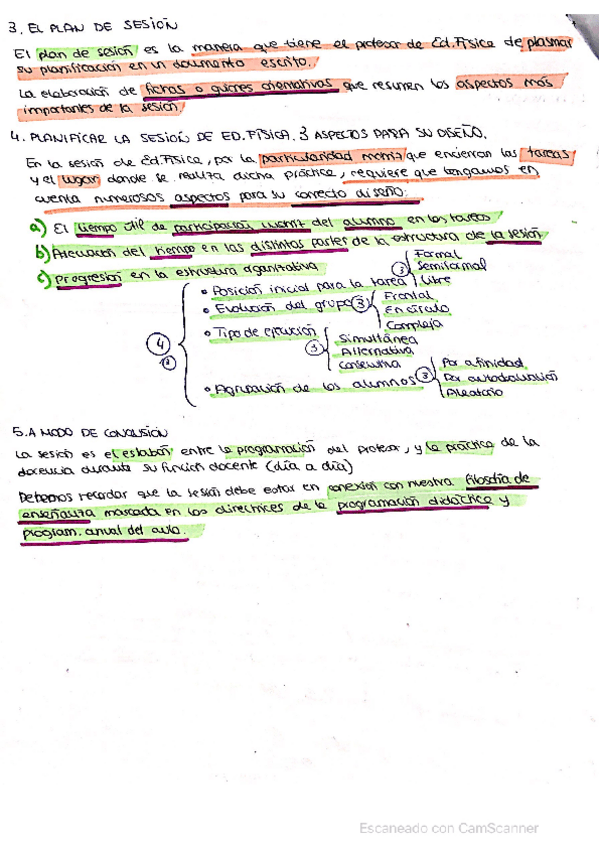 3. EL PLAN DE SESIÓN
El plan de sesión es la manera que tiene el profesor de Ed. Física de plasmar
su planificación en un documento escrito.
La elaboración de fichas o guiones orientativos que resumen los aspectos más
importantes de la sesión.
4. PLANIFICAR LA SESIÓN DE ED. FÍSICA. 3 ASPECTOS PARA SU DISEÑO.
En la sesión de Ed. Física, por la particularidad motriz que encierran las tareas
y el lugar donde se realiza dicha práctica, requiere que tengamos en
cuenta numerosos aspectos para su correcto diseño.
a) El tiempo útil de participación motriz del alumno en las tareas
b) Adecuación del tiempo en las distintas partes de la estructura de la sesión
c) Progresión en la estructura organizativa
4
• Posición inicial para la tarea 3
Formal
Semiformal
Libre
• Evolución del grupo 3
Frontal
En círculo
Compleja
• Tipo de ejecución 3
Simultánea
Alternativa
Consecutiva
• Agrupación de los alumnos 3
Por afinidad
Por autoevaluación
Aleatorio
5. A MODO DE CONCLUSIÓN
La sesión es el eslabón entre la programación del profesor, y la práctica de la
docencia durante su función docente (día a día)
Debemos recordar que la sesión debe estar en conexión con nuestra filosofía de
enseñanza marcada en las directrices de la programación didáctica y
program. anual del aula.
Escaneado con CamScanner